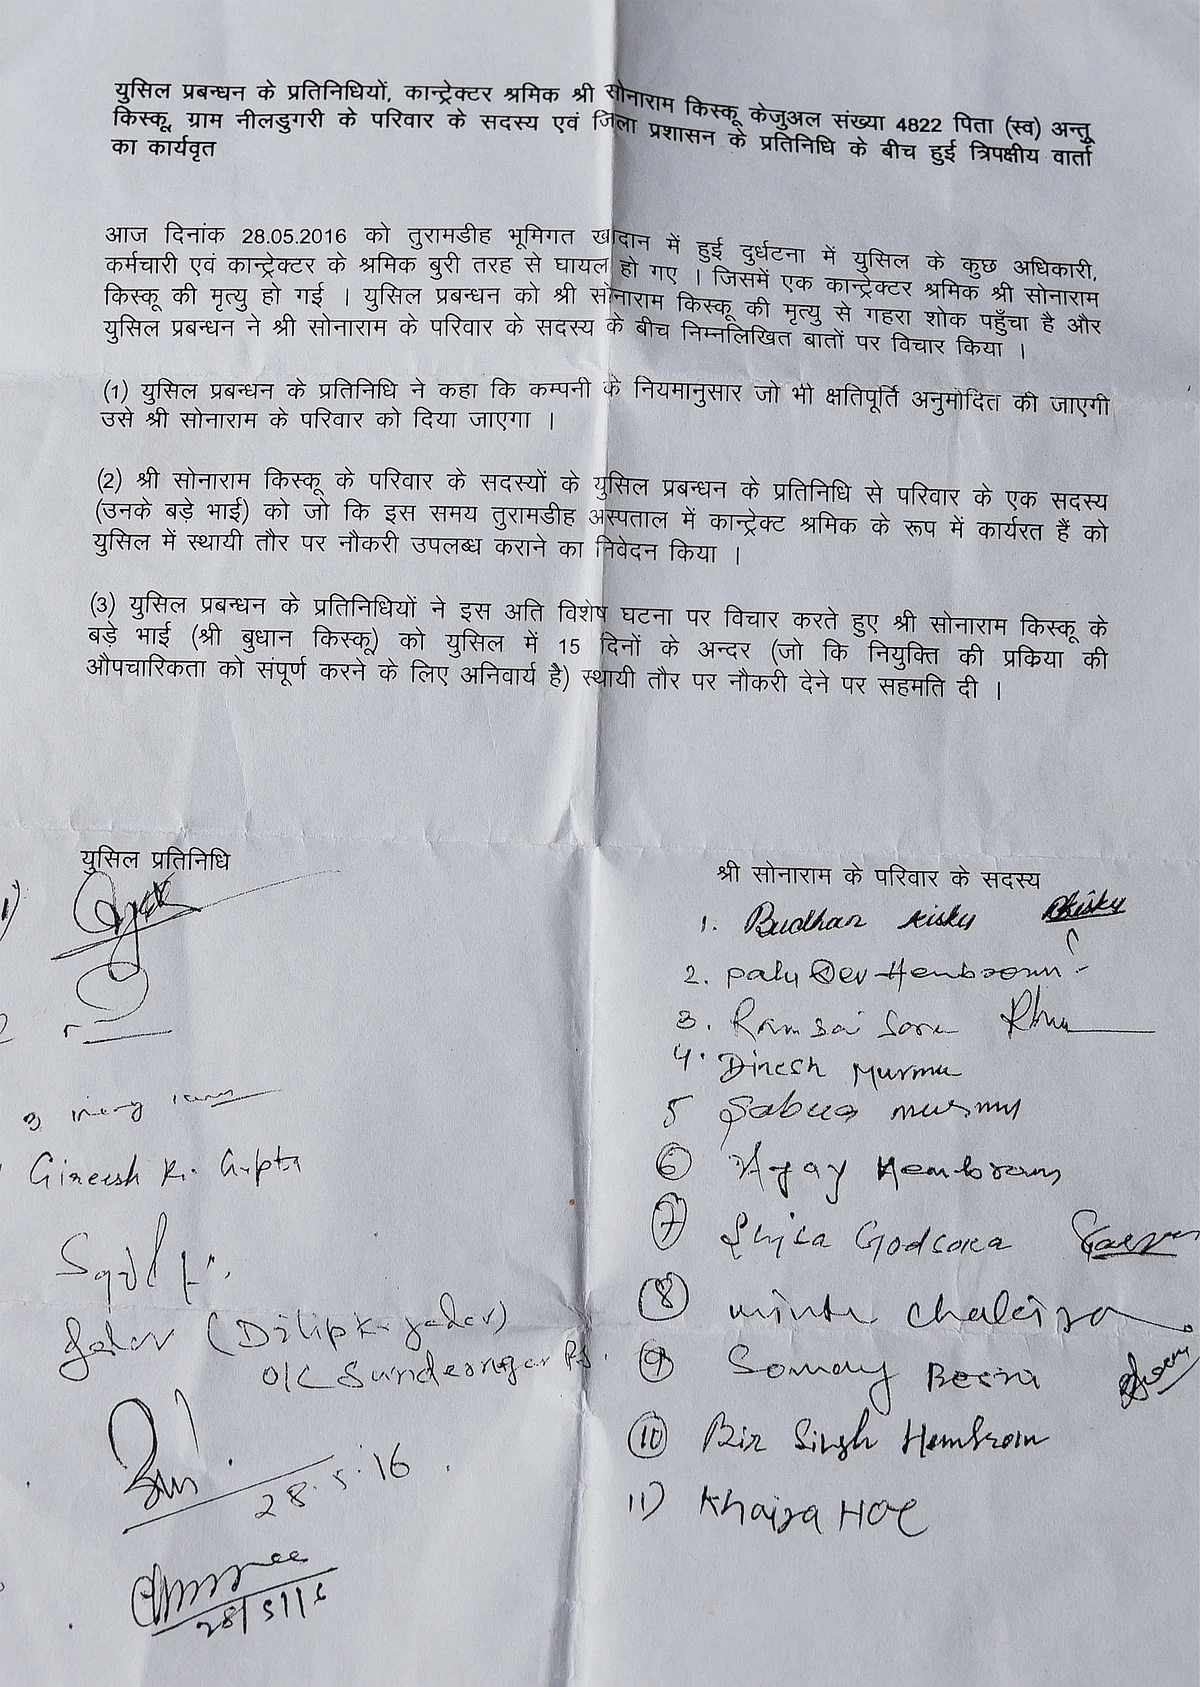 युसिल प्रबन्धन के प्रतिनिधियों, कान्ट्रेक्टर श्रमिक श्री सोनाराम किस्कू केजुअल संख्या 4822 पिता (स्व) अन्तु
किस्कू, ग्राम नीलडुगरी के परिवार के सदस्य एवं जिला प्रशासन के प्रतिनिधि के बीच हुई त्रिपक्षीय वार्ता
का कार्यवृत
आज दिनांक 28.05.2016 को तुरामडीह भूमिगत खादान में हुई दुर्धटना में युसिल के कुछ अधिकारी,
कर्मचारी एवं कान्ट्रेक्टर के श्रमिक बुरी तरह से घायल हो गए । जिसमें एक कान्ट्रेक्टर श्रमिक श्री सोनाराम
किस्कू की मृत्यु हो गई । युसिल प्रबन्धन को श्री सोनाराम किस्कू की मृत्यु से गहरा शोक पहुँचा है और
युसिल प्रबन्धन ने श्री सोनाराम के परिवार के सदस्य के बीच निम्नलिखित बातों पर विचार किया ।
(1) युसिल प्रबन्धन के प्रतिनिधि ने कहा कि कम्पनी के नियमानुसार जो भी क्षतिपूर्ति अनुमोदित की जाएगी
उसे श्री सोनाराम के परिवार को दिया जाएगा ।
(2) श्री सोनाराम किस्कू के परिवार के सदस्यों के युसिल प्रबन्धन के प्रतिनिधि से परिवार के एक सदस्य
(उनके बड़े भाई) को जो कि इस समय तुरामडीह अस्पताल में कान्ट्रेक्ट श्रमिक के रूप में कार्यरत हैं को
युसिल में स्थायी तौर पर नौकरी उपलब्ध कराने का निवेदन किया ।
(3) युसिल प्रबन्धन के प्रतिनिधियों ने इस अति विशेष घटना पर विचार करते हुए श्री सोनाराम किस्कू के
बड़े भाई (श्री बुधान किस्कू) को युसिल में 15 दिनों के अन्दर (जो कि नियुक्ति की प्रकिया की
औपचारिकता को संपूर्ण करने के लिए अनिवार्य है) स्थायी तौर पर नौकरी देने पर सहमति दी ।
युसिल प्रतिनिधि
1)
2
3
Gireesh K. Gupta
(Dilip Kr. Yadav)
O/C Sundernagar P.S.
28.5.16
28/5/16
श्री सोनाराम के परिवार के सदस्य
1. Budhan Kisku BKisku
2. Dev Hembroom
3. Ramsai Soru
4. Dinesh Murmu
5 murmu
6 Ajay Hembrom
7
8
9 Somay Besra
10 Bir Singh Hembrom
11) Khaira Hoe